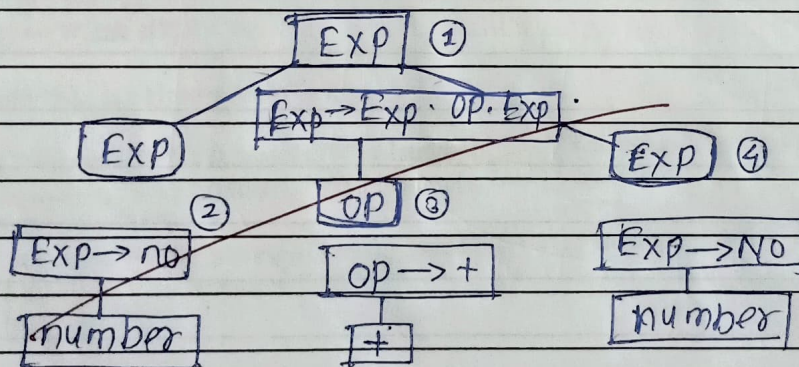 Exp ①
Exp→Exp. OP. Exp.
Exp
Exp ④
②
OP ③
Exp→no
OP→+
Exp→NO
number
+
number